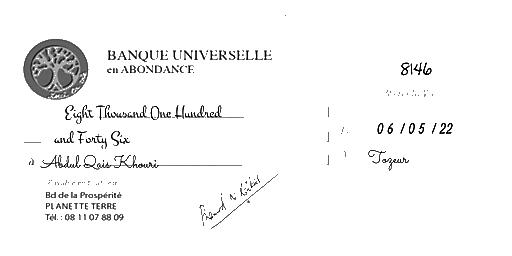 BANQUE UNIVERSELLE
en ABONDANCE
8146
Eight Thousand One Hundred
and Forty Six
06/05/22
à Abdul Qais Khouri
Tozeur
Bd de la Prospérité
PLANETTE TERRE
Tél. : 08 11 07 88 09